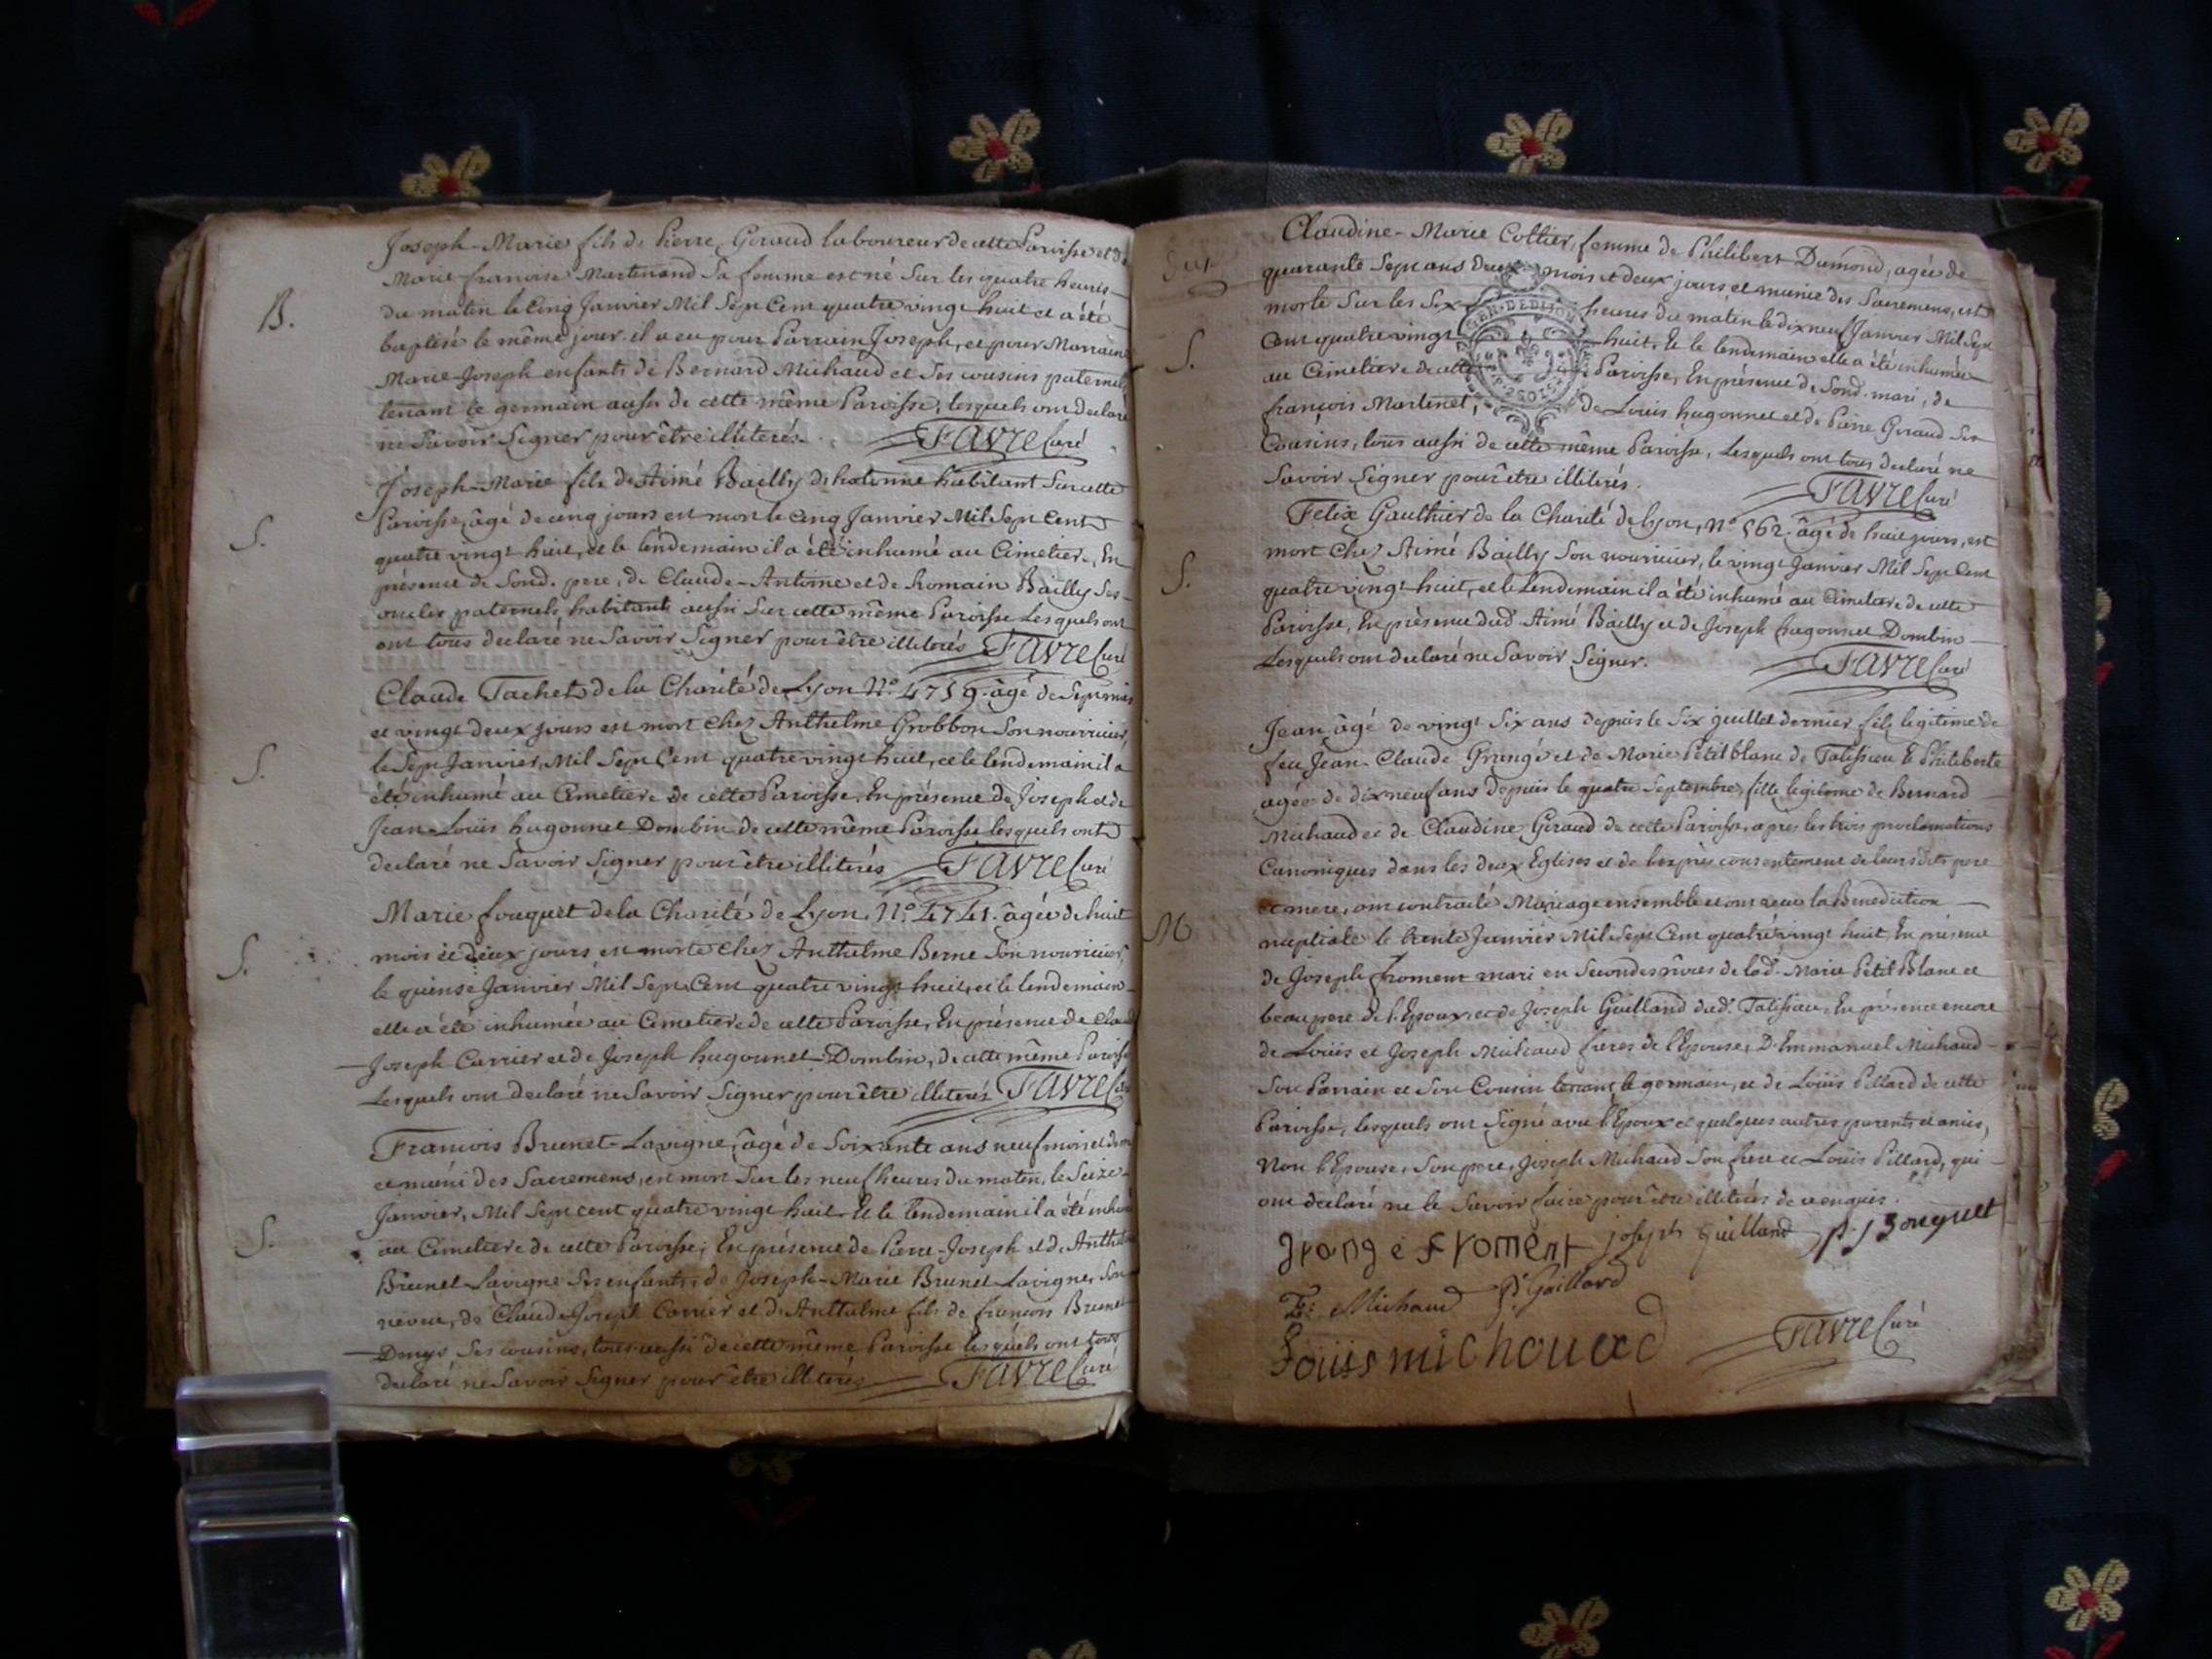 Joseph-Marie fils de Pierre Giraud laboureur de cette Paroisse et de
Marie-francoise Martinand Sa femme est né Sur les quatre heures
B.
du matin le Cinq Janvier Mil Sept Cent quatre vingt huit et a été
baptisé le même jour. il a eu pour Parrain Joseph, et pour Marraine
Marie-Joseph enfants de Bernard Michaud et Ses cousins paternels
tenant le germain aussi de cette même Paroisse, lesquels ont declaré
ne Savoir Signer pour être illiterés. FAVRE Curé
Joseph-Marie fils de Aimé Bailly de hotonne habitant Sur cette
S.
Paroisse, âgé de cinq jours est mort le Cinq Janvier Mil Sept Cent
quatre vingt huit, et le lendemain il a été inhumé au Cimetiere, En
présence de Sond. pere, de Claude-Antoine et de Romain Bailly Ses
oncles paternels, habitants aussi Sur cette même Paroisse Lesquels ont
ont tous declaré ne Savoir Signer pour être illiterés FAVRE Curé
Claude Tachet de la Charité de Lyon N.° 4759. âgé de Sept mois
et vingt deux jours est mort chez Anthelme Grobbon Son nourricier,
S.
le Sept Janvier, Mil Sept Cent quatre vingt huit, et le lendemain il a
été inhumé au Cimetiere de cette Paroisse, En présence de Joseph et de
Jean-Loüis hugonnet Dombin de cette même Paroisse lesquels ont
declaré ne Savoir Signer pour être illiterés FAVRE Curé
Marie fouquet de la Charité de Lyon, N.° 4741. âgée de huit
S.
mois et deux jours est morte chez Anthelme Berne Son nourricier,
le quinse Janvier Mil Sept Cent quatre vingt huit, et le lendemain
elle a été inhumée au Cimetiere de cette Paroisse, En présence de Claude
Joseph Carrier et de Joseph hugonnet-Dombin, de cette même Paroisse
Lesquels ont declaré ne Savoir Signer pour être illiterés FAVRE Curé
Francois Brunet-Lavigne, âgé de Soixante ans neuf mois et
et muni des Sacremens, est mort Sur les neuf heures du matin, le Seize
Janvier, Mil Sept cent quatre vingt huit. Et le lendemain il a été inhumé
S.
au Cimetiere de cette Paroisse, En présence de Pierre-Joseph et de Anthelme
Brunet-Lavigne Ses enfants, de Joseph-Marie Brunet-Lavigne, Son
neveu, de Claude-Joseph Carrier et de Anthelme fils de francois Brunet
Ses cousins, tous aussi de cette même Paroisse lesquels ont tous
declaré ne Savoir Signer pour être illiterés FAVRE Curé
Claudine-Marie Cottier, femme de Philibert Dumond, agée de
quarante Sept ans deux mois et deux jours et munie des Sacremens, est
morte Sur les Six heures du matin le dix neuf Janvier Mil Sept
GEN. DE DIJON
Cent quatre vingt huit. Et le lendemain elle a été inhumée
S.
au Cimetiere de cette Paroisse, En présence de Sond. mari, de
françois Martinet, de Loüis hugonnet et de Pierre Giraud Ses
Cousins, tous aussi de cette même Paroisse, Lesquels ont tous declaré ne
Savoir Signer pour être illiterés. FAVRE Curé
Felix Gaulthier de la Charité de Lyon, N.° 562. âgé de huit jours, est
mort chez Aimé Bailly Son nourricier, le vingt Janvier Mil Sept Cent
S.
quatre vingt-huit, et le Lendemain il a été inhumé au Cimetiere de cette
Paroisse, En présence dud. Aimé Bailly et de Joseph hugonnet Dombin
Lesquels ont declaré ne Savoir Signer. FAVRE Curé
Jean âgé de vingt Six ans depuis le Six juillet dernier fils legitime de
feu Jean-Claude Grangé et de Marie Petitblanc de Talissieu Et Philiberte
agée de dix neuf ans depuis le quatre Septembre, fille legitime de Bernard
Michaud et de Claudine Giraud de cette Paroisse, après les trois proclamations
Canoniques dans les deux Eglises et de l'exprès consentement de leurs dits pere
et mere, ont contracté Mariage ensemble et ont recu la Benediction
M
nuptiale le trente Janvier Mil Sept Cent quatre vingt huit, En présence
de Joseph froment mari en Secondes nôces de lad. Marie Petit Blanc et
beau pere de l'Epoux, et de Joseph Guilland dud. Talissieu, En présence encore
de Loüis et Joseph Michaud freres de l'Epouse, D'Emmanuel Michaud
Son Parrain et Son Cousin tenant le germain, et de Loüis Pillard de cette
Paroisse, lesquels ont Signé avec l'Epoux et quelques autres parents et amies,
Non l'Epouse, Son pere, Joseph Michaud Son frere et Loüis Pillard, qui
ont declaré ne le Savoir faire pour être illiterés de ce enquis.
grangé froment joseph guilland p. j Bouquet
E: Michaud p. Gaillard
Loüis michouad FAVRE Curé